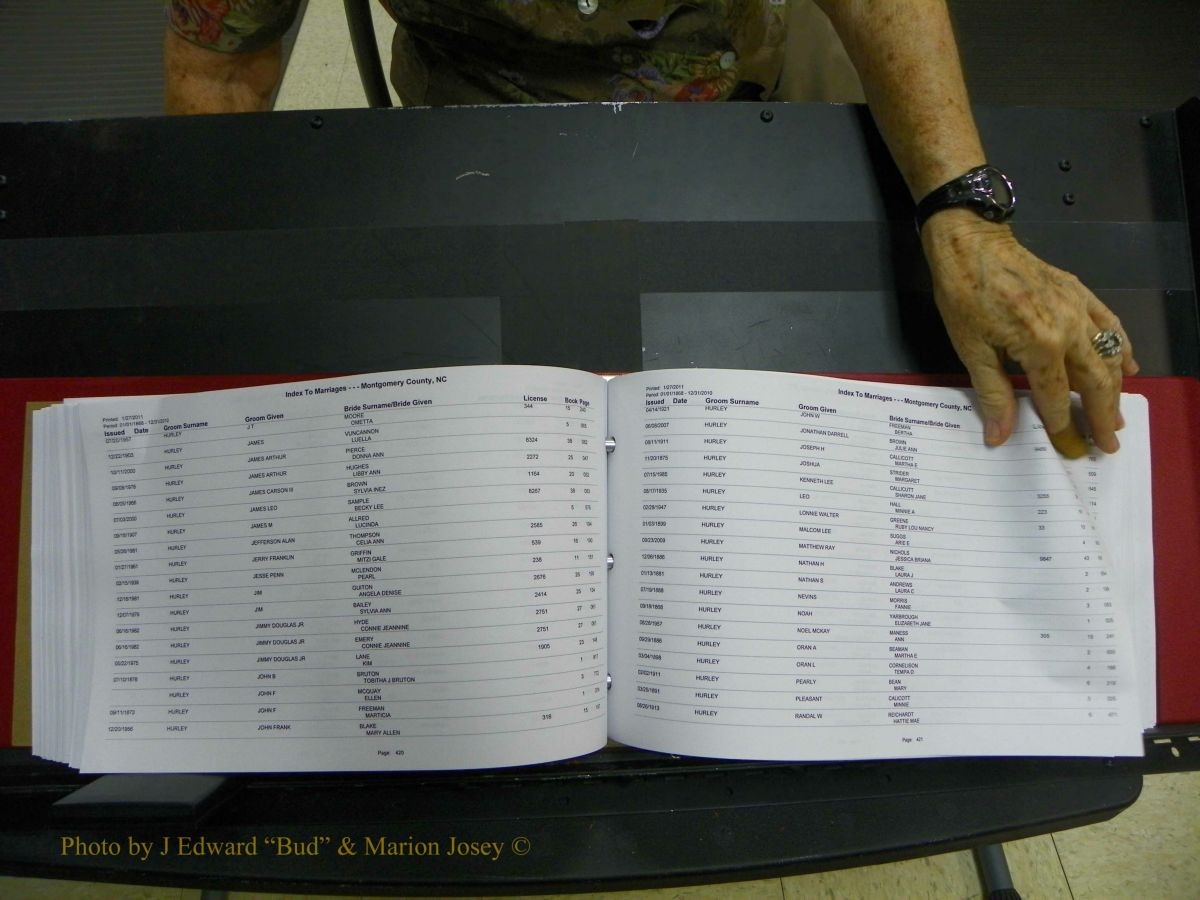 Index To Marriages - - - Montgomery County, NC
Printed: 1/27/2011
Period: 01/01/1868 - 12/31/2010
Issued Date Groom Surname Groom Given Bride Surname/Bride Given License Book Page
HURLEY J T MOORE 344 15
OMETTA
12/22/1903 HURLEY JAMES VUNCANNON 5
LUELLA
10/11/2000 HURLEY JAMES ARTHUR PIERCE 6324 38
DONNA ANN
HURLEY JAMES ARTHUR HUGHES 2272 25
LIBBY ANN
HURLEY JAMES CARSON III BROWN 1164 20
SYLVIA INEZ
HURLEY JAMES LEO SAMPLE 6267 38
BECKY LEE
HURLEY JAMES M ALLRED 5
LUCINDA
HURLEY JEFFERSON ALAN THOMPSON 2565 26
CELIA ANN
01/27/1961 HURLEY JERRY FRANKLIN GRIFFIN 539 16
MITZI GALE
HURLEY JESSE PENN MCLENDON 236 11
PEARL
12/18/1981 HURLEY JIM GUITON 2676 25
ANGELA DENISE
12/07/1979 HURLEY JIM BAILEY 2414 25
SYLVIA ANN
06/16/1982 HURLEY JIMMY DOUGLAS JR HYDE 2751 27
CONNIE JEANNINE
06/16/1982 HURLEY JIMMY DOUGLAS JR EMERY 2751 27
CONNIE JEANNINE
HURLEY JIMMY DOUGLAS JR LANE 1905 23
KIM
07/10/1878 HURLEY JOHN B BRUTON 1
TOBITHA J BRUTON
HURLEY JOHN F MCQUAY
ELLEN
09/11/1873 HURLEY JOHN F FREEMAN 1
MARTICIA
12/20/1956 HURLEY JOHN FRANK BLAKE 318 15
MARY ALLEN
Page: 420
Index To Marriages - - - Montgomery County, NC
Printed: 1/27/2011
Period: 01/01/1868 - 12/31/2010
Issued Date Groom Surname Groom Given Bride Surname/Bride Given
04/14/1921 HURLEY JOHN W FREEMAN
BERTHA
06/06/2007 HURLEY JONATHAN DARRELL BROWN
JULIE ANN
09/11/1911 HURLEY JOSEPH H CALLICOTT
MARTHA E
11/20/1875 HURLEY JOSHUA STRIDER
MARGARET
07/15/1985 HURLEY KENNETH LEE CALLICUTT 3255
SHARON JANE
08/17/1935 HURLEY LEO HALL 223
MINNIE A
02/28/1947 HURLEY LONNIE WALTER GREENE 33
RUBY LOU NANCY
01/03/1899 HURLEY MALCOM LEE SUGGS 4
ARIE E
09/23/2009 HURLEY MATTHEW RAY NICHOLS 9847 43
JESSICA BRIANA
12/06/1886 HURLEY NATHAN H BLAKE 2
LAURA J
01/13/1881 HURLEY NATHAN S ANDREWS 2
LAURA C
07/19/1888 HURLEY NEVINS MORRIS 3
FANNIE
09/18/1868 HURLEY NOAH YARBROUGH 1
ELIZABETH JANE
HURLEY NOEL MCKAY MANESS 305 15
ANN
09/29/1886 HURLEY ORAN A BEAMAN 2
MARTHA E
03/04/1898 HURLEY ORAN L CORNELISON 4
TEMPA D
02/02/1911 HURLEY PEARLY BEAN 6
MARY
03/25/1891 HURLEY PLEASANT CALICOTT
MINNIE
HURLEY RANDAL W REICHARDT 6
HATTIE MAE
Page: 421
Photo by J Edward “Bud” & Marion Josey ©